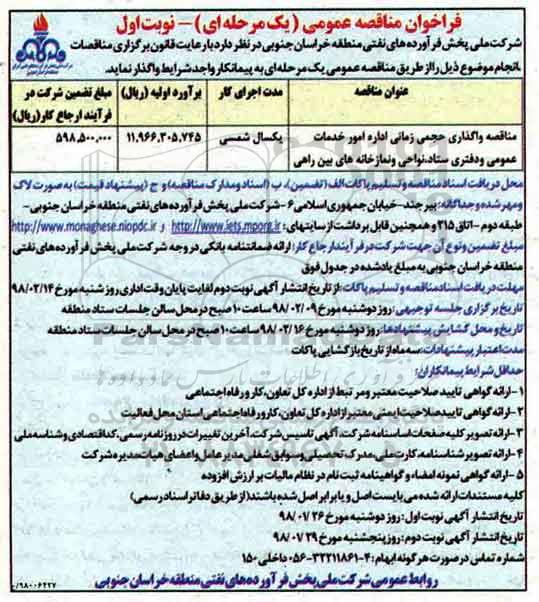 فراخوان مناقصه عمومی (یک مرحله ای) - نوبت اول
شرکت ملی پخش فرآورده های نفتی منطقه خراسان جنوبی در نظر دارد با رعایت قانون برگزاری مناقصات
انجام موضوع ذیل را از طریق مناقصه عمومی یک مرحله ای به پیمانکار واجد شرایط واگذار نماید.
عنوان مناقصه
مدت اجرای کار
برآورد اولیه (ریال)
مبلغ تضمین شرکت در فرآیند ارجاع کار (ریال)
مناقصه واگذاری حجمی زمانی اداره امور خدمات
عمومی ودفتری ستاد،نواحی ونمازخانه های بین راهی
یکسال شمسی
۱۱,۹۶۶,۳۰۵,۷۴۵
۵۹۸,۵۰۰,۰۰۰
محل دریافت اسناد مناقصه و تسلیم پاکات الف (تضمین)، ب (اسناد ومدارک مناقصه) و ج (پیشنهاد قیمت) به صورت لاک
ومهر شده وجداگانه: بیرجند-خیابان جمهوری اسلامی ۶ - شرکت ملی پخش فرآورده های نفتی منطقه خراسان جنوبی -
طبقه دوم - اتاق ۳۱۵ و همچنین قابل برداشت از سایتهای: http://www.iets.mporg.ir و http://www.monaghese.niopdc.ir
مبلغ تضمین ونوع آن جهت شرکت در فرآیند ارجاع کار: ارائه ضمانتنامه بانکی در وجه شرکت ملی پخش فرآورده های نفتی
منطقه خراسان جنوبی به مبلغ یادشده در جدول فوق
مهلت دریافت اسناد مناقصه و تسلیم پاکات: از تاریخ انتشار آگهی نوبت دوم لغایت پایان وقت اداری روز شنبه مورخ ۹۸/۰۲/۱۴
تاریخ برگزاری جلسه توجیهی: روز دوشنبه مورخ ۹۸/۰۲/۰۹ ساعت ۱۰ صبح در محل سالن جلسات ستاد منطقه
تاریخ و محل گشایش پیشنهادها: روز دوشنبه مورخ ۹۸/۰۲/۱۶ ساعت ۱۰ صبح در محل سالن جلسات ستاد منطقه
مدت اعتبار پیشنهادات: سه ماه از تاریخ بازگشایی پاکات
حداقل شرایط پیمانکاران:
۱-ارائه گواهی تایید صلاحیت معتبر ومرتبط از اداره کل تعاون، کار و رفاه اجتماعی
۲-ارائه گواهی تایید صلاحیت ایمنی معتبر از اداره کل تعاون، کار و رفاه اجتماعی استان محل فعالیت
۳-ارائه تصویر کلیه صفحات اساسنامه شرکت، آگهی تاسیس شرکت، آخرین تغییرات در روزنامه رسمی، کد اقتصادی و شناسه ملی
۴-ارائه تصویر شناسنامه، کارت ملی، مدرک تحصیلی و سوابق شغلی مدیرعامل و اعضای هیات مدیره شرکت
۵-ارائه گواهی نمونه امضاء و گواهینامه ثبت نام در نظام مالیات بر ارزش افزوده
کلیه مستندات ارائه شده می بایست اصل و یا برابر اصل شده باشند (از طریق دفاتر اسناد رسمی)
تاریخ انتشار آگهی نوبت اول: روز دوشنبه مورخ ۹۸/۰۱/۲۶
تاریخ انتشار آگهی نوبت دوم: روز پنجشنبه مورخ ۹۸/۰۱/۲۹
شماره تماس در صورت هر گونه ابهام: ۴-۳۲۲۱۱۸۶۱-۰۵۶ داخلی ۱۵۰
روابط عمومی شرکت ملی پخش فرآورده های نفتی منطقه خراسان جنوبی
۹۸۰۰۶۲۲۷/